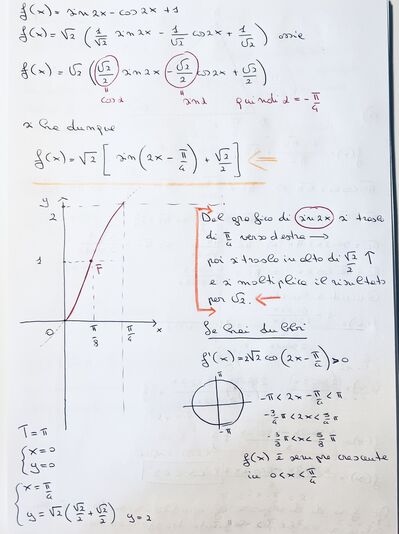 f(x) = sin2x - cos2x + 1
f(x) = √2 (1/√2 sin2x - 1/√2 cos2x + 1/√2) ossia
f(x) = √2 (√2/2 sin2x - √2/2 cos2x + √2/2)
cosα sinα quindi α = -π/4
si ha dunque
f(x) = √2 [sin(2x - π/4) + √2/2]
y
2
1
F
O
π/8
π/4
x
Dal grafico di sin2x si trasla
di π/4 verso destra →
poi si trasla in alto di √2/2 ↑
e si moltiplica il risultato
per √2.
Se hai dubbi
f'(x) = 2√2 cos(2x - π/4) > 0
π
-π
-π < 2x - π/4 < π
-3/4 π < 2x < 5/4 π
-3/8 π < x < 5/8 π
f(x) è sempre crescente
in 0 < x < π/4
T = π
{x = 0
y = 0
{x = π/4
y = √2 (√2/2 + √2/2) y = 2